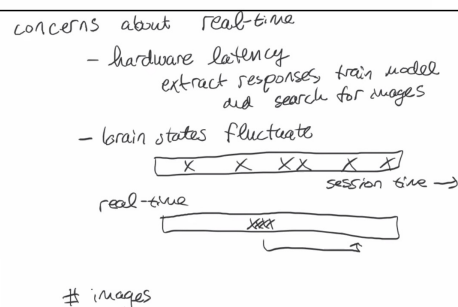 concerns about real-time
- hardware latency
extract responses, train model
and search for images
- brain states fluctuate
x x xx x x
session time →
real-time
xxxx
# images